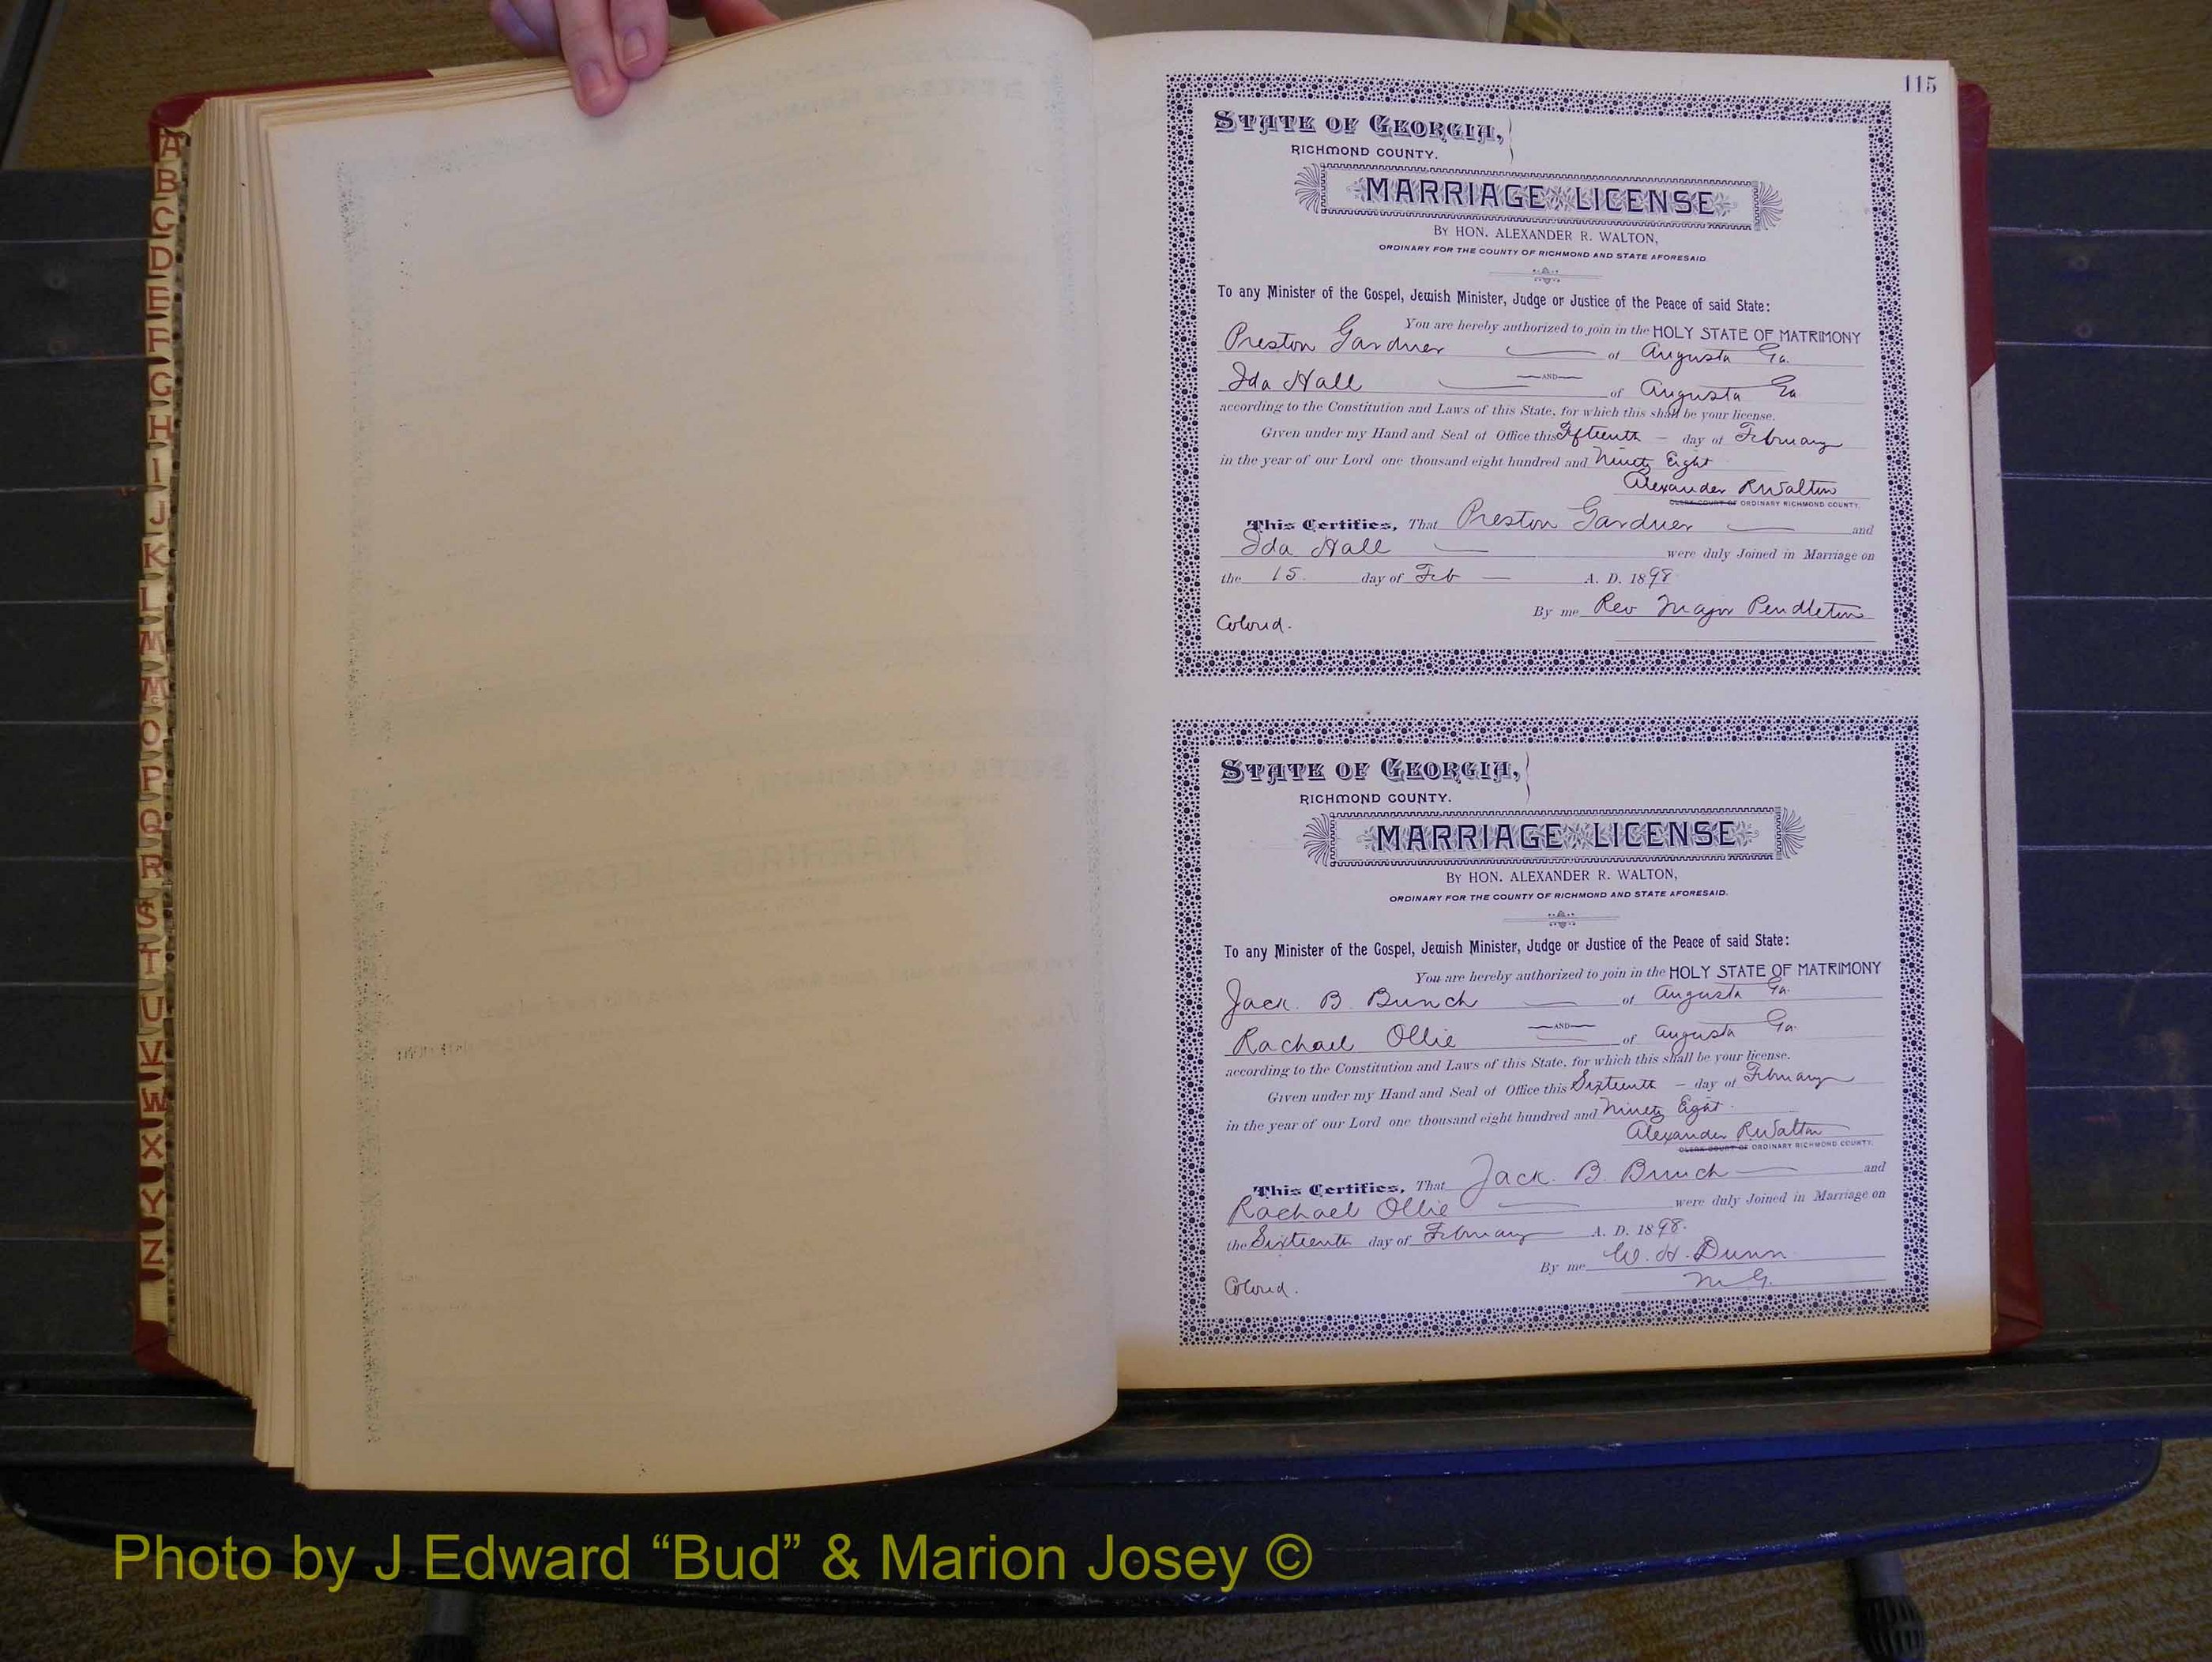 A
B
C
D
E
F
G
H
I
J
K
L
M
Mc
O
P
Q
R
S
T
U
V
W
X
Y
Z
115
STATE OF GEORGIA,
RICHMOND COUNTY.
MARRIAGE LICENSE
BY HON. ALEXANDER R. WALTON,
ORDINARY FOR THE COUNTY OF RICHMOND AND STATE AFORESAID.
To any Minister of the Gospel, Jewish Minister, Judge or Justice of the Peace of said State:
You are hereby authorized to join in the HOLY STATE OF MATRIMONY
Preston Gardner of Augusta Ga.
AND
Ida Hall of Augusta Ga
according to the Constitution and Laws of this State, for which this shall be your license.
Given under my Hand and Seal of Office this Fifteenth - day of February
in the year of our Lord one thousand eight hundred and Ninety Eight
Alexander R Walton
CLERK COURT OF ORDINARY RICHMOND COUNTY.
This Certifies, That Preston Gardner and
Ida Hall were duly Joined in Marriage on
the 15. day of Feb A. D. 1898
By me Rev Major Pendleton
Colored.
STATE OF GEORGIA,
RICHMOND COUNTY.
MARRIAGE LICENSE
BY HON. ALEXANDER R. WALTON,
ORDINARY FOR THE COUNTY OF RICHMOND AND STATE AFORESAID.
To any Minister of the Gospel, Jewish Minister, Judge or Justice of the Peace of said State:
You are hereby authorized to join in the HOLY STATE OF MATRIMONY
Jack. B. Bunch of Augusta Ga.
AND
Rachael Ollie of Augusta Ga.
according to the Constitution and Laws of this State, for which this shall be your license.
Given under my Hand and Seal of Office this Sixteenth - day of February
in the year of our Lord one thousand eight hundred and Ninety Eight.
Alexander R Walton
CLERK COURT OF ORDINARY RICHMOND COUNTY.
This Certifies, That Jack. B. Bunch and
Rachael Ollie were duly Joined in Marriage on
the Sixteenth day of February A. D. 1898.
By me W. H. Dunn
M G.
Colored.
Photo by J Edward “Bud” & Marion Josey ©